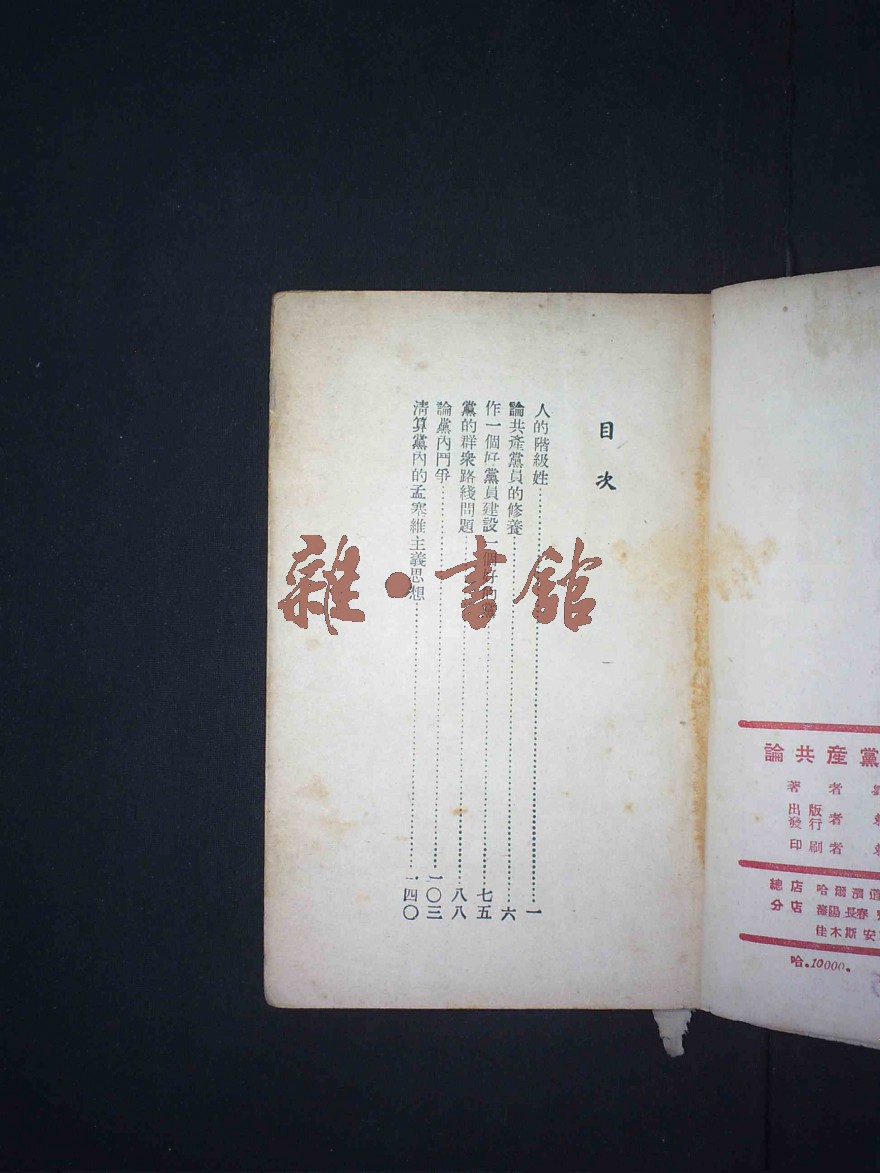 目次
人的階級姓 一
論共產黨員的修養 六
作一個好黨員建設一個好的黨 七五
黨的群衆路綫問題 八八
論黨內鬥爭 一〇三
清算黨內的孟塞維主義思想 一四〇
雜·書館
論共產黨
著者
出版
發行者
印刷者
總店 哈爾濱道
分店 瀋陽 長春
佳木斯 安
哈.10000.